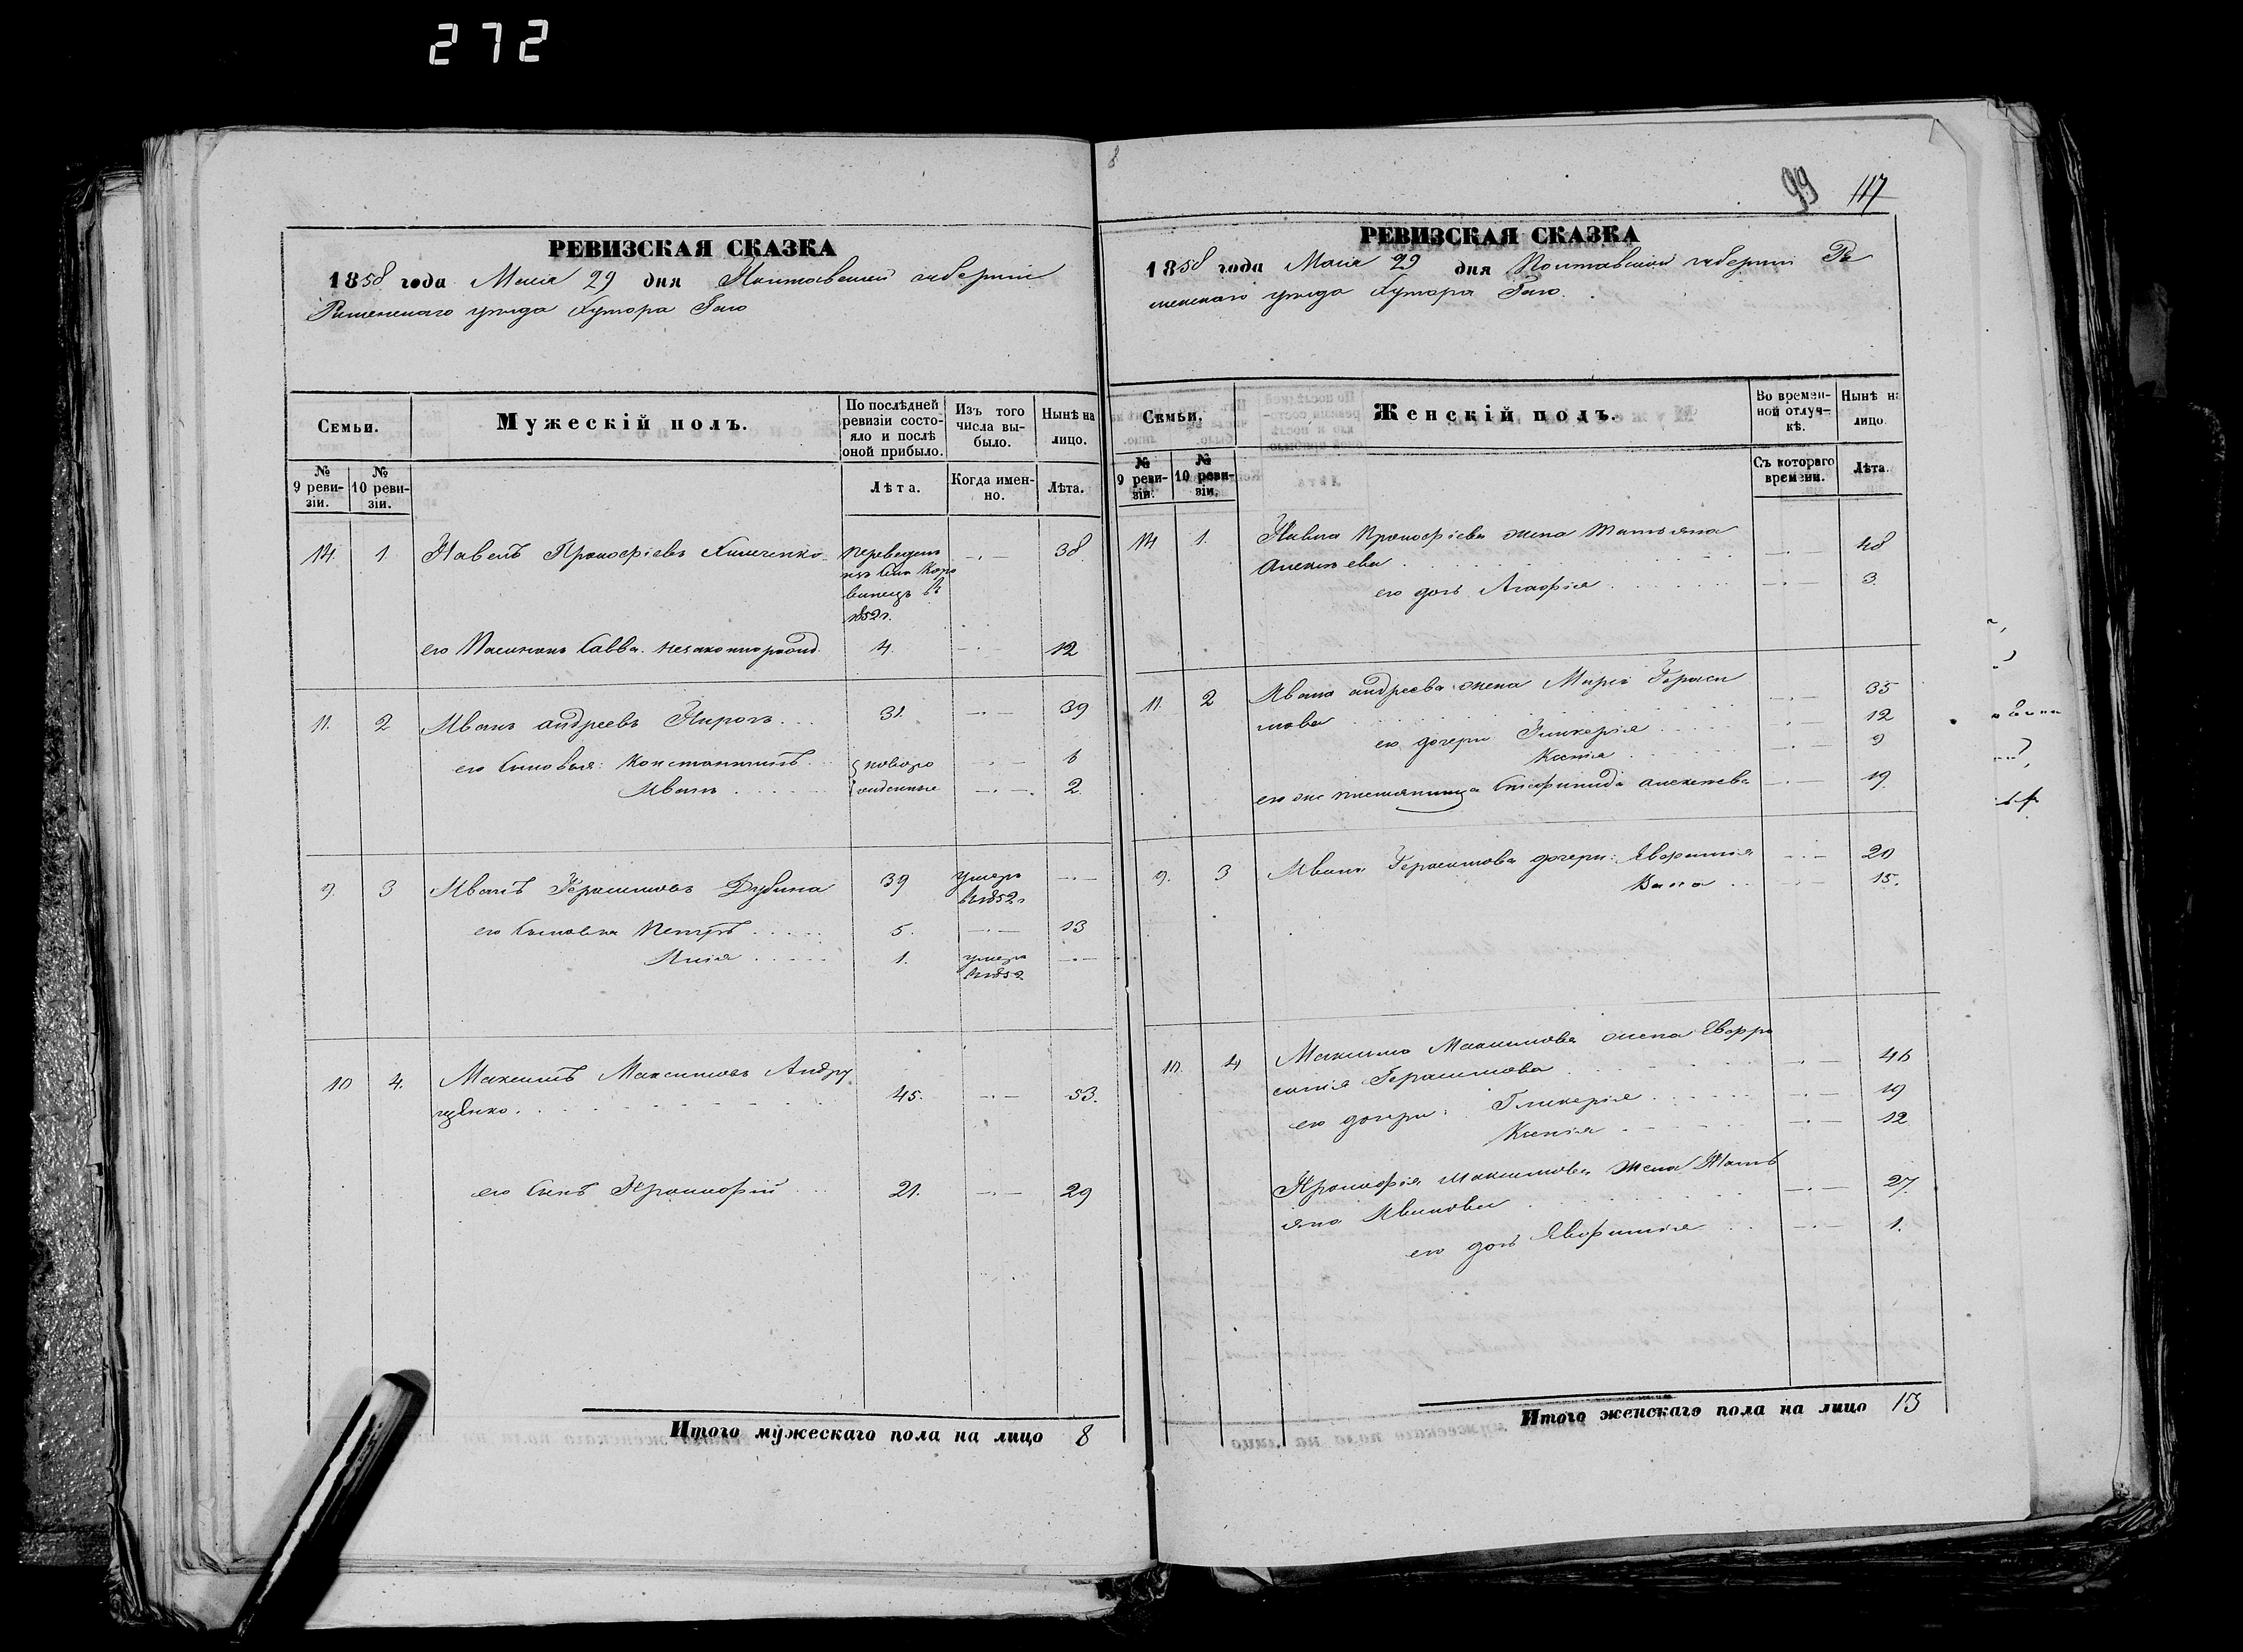 272
РЕВИЗСКАЯ СКАЗКА
1858 года Маія 29 дня Полтавской губерніи
Роменскаго уѣзда Хутора Гаю
Семьи.
Мужескій полъ.
По послѣдней ревизіи состояло и послѣ оной прибыло.
Изъ того числа выбыло.
Нынѣ на лицо.
№ 9 ревизіи.
№ 10 ревизіи.
Лѣта.
Когда именно.
Лѣта.
14 1 Павелъ Прокофіевъ переведенъ 38
изъ села
въ
1852 г.
его Пасынокъ Савва незаконнорожд. 4. 12
11. 2 Иванъ андреевъ Пирогъ 31. 39
его Сыновья: Константинъ новоро 6
Иванъ жденные 2.
9. 3 Иванъ Герасимовъ Дубина 39 умеръ
въ 1852 г
его Сыновья Петръ 5. 13
Илія 1. умеръ
въ 1852
10 4. Максимъ Максимовъ Андру
щенко. 45. 53.
его Сынъ Прокофій 21. 29
Итого мужескаго пола на лицо 8
8
99 117
РЕВИЗСКАЯ СКАЗКА
1858 года Маія 29 дня Полтавской губерніи Ро
менскаго уѣзда Хутора Гаю.
Семьи.
Женскій полъ.
Во временной отлучкѣ.
Нынѣ на лицо.
№ 9 ревизіи.
№ 10 ревизіи.
Съ котораго времени.
Лѣта.
14 1. Павла Прокофіева жена Татьяна
Алексѣева 48
его дочь Агафія 3.
11. 2 Ивана андреева жена Марія Гераси
мова 35
его дочери Гликерія 12
Ксенія 9
его же племянница алексѣева 19.
9. 3 Ивана Герасимова дочери: Евфимія 20
15.
10. 4 Максима Максимова жена Евфро
синія Герасимова 46
его дочери: Гликерія 19
Ксенія 12
Прокофія Максимова жена Тать
яна Иванова 27.
его дочь Евфимія 1.
Итого женскаго пола на лицо 13